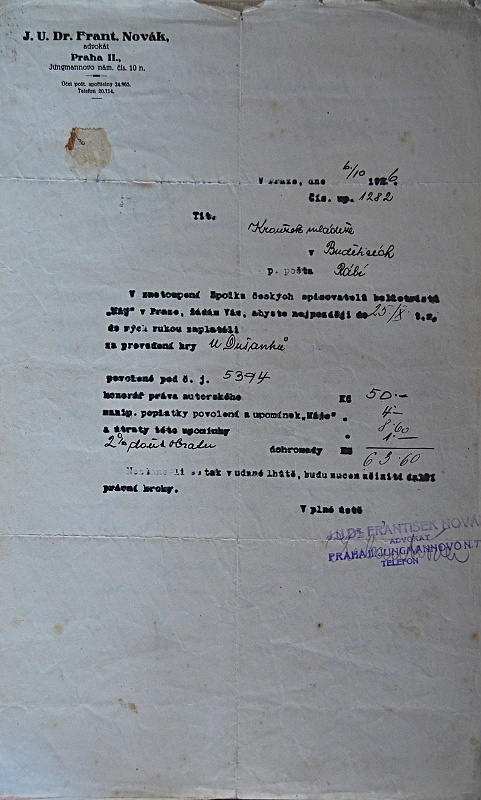 J. U. Dr. Frant. Novák,
advokát
Praha II.,
Jungmannovo nám. čís. 10 n.
Účet pošt. spořitelny 34.965.
Telefon 20.114.
V Praze, dne 6/10 1926.
Čís. up. 1282
Tit.
Kroužek mládeže
v Buděticích
p. pošta Rábí
V zastoupení Spolku českých spisovatelů beletristů
„Máj" v Praze, žádám Vás, abyste nejpozději do 25/X. t.r.
do mých rukou zaplatili
za provedení hry U Dušánků
povolené pod č. j. 5394
honorář práva autorského Kč 50.-
manip. poplatky povolení a upomínek „Máje" . 4-
a útraty této upomínky " 8.60
2% daně z obratu 1.-
dohromady Kč 63.60
li se tak v udané lhůtě, budu nucen učiniti další
právní kroky.
V plné úctě
J.U.DR. FRANTIŠEK NOVÁK
ADVOKÁT
PRAHA II. JUNGMANNOVO N.
TELEFON